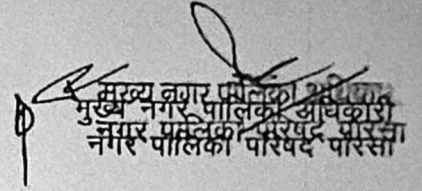 मुख्य नगर पालिका
मुख्य नगर पालिका अधिकारी
नगर पालिका परिषद पोरसा
नगर पालिका परिषद पोरसा